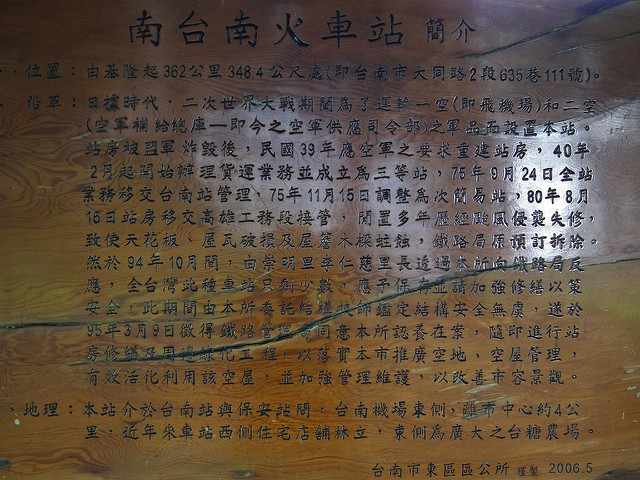 南台南火車站 簡介
一、位置：由基隆起362公里348.4公尺處(即台南市大同路2段635巷111號)。
二、沿革：日據時代，二次世界大戰期間為了運輸一空(即飛機場)和二空
(空軍補給總庫—即今之空軍供應司令部)之軍品而設置本站。
站房被盟軍炸毀後，民國39年應空軍之要求重建站房，40年
2月起開始辦理貨運業務並成立為三等站，75年9月24日全站
業務移交台南站管理，75年11月15日調整為次簡易站，80年8月
16日站房移交高雄工務段接管，閒置多年歷經颱風侵襲失修，
致使天花板、屋瓦破損及屋簷木樑蛀蝕，鐵路局原預訂拆除。
然於94年10月間，由崇明里李仁慈里長透過本所向鐵路局反
應，全台灣此種車站只剩少數，應予保存並請加強修繕以策
安全，此期間由本所委託結構技師鑑定結構安全無虞，遂於
95年3月9日徵得鐵路管理局同意本所認養在案，隨即進行站
房修繕及周邊綠化工程，以落實本市推廣空地、空屋管理，
有效活化利用該空屋，並加強管理維護，以改善市容景觀。
、地理：本站介於台南站與保安站間，台南機場東側，離市中心約4公
里，近年來車站西側住宅店舖林立，東側為廣大之台糖農場。
台南市東區區公所 謹製 2006.5